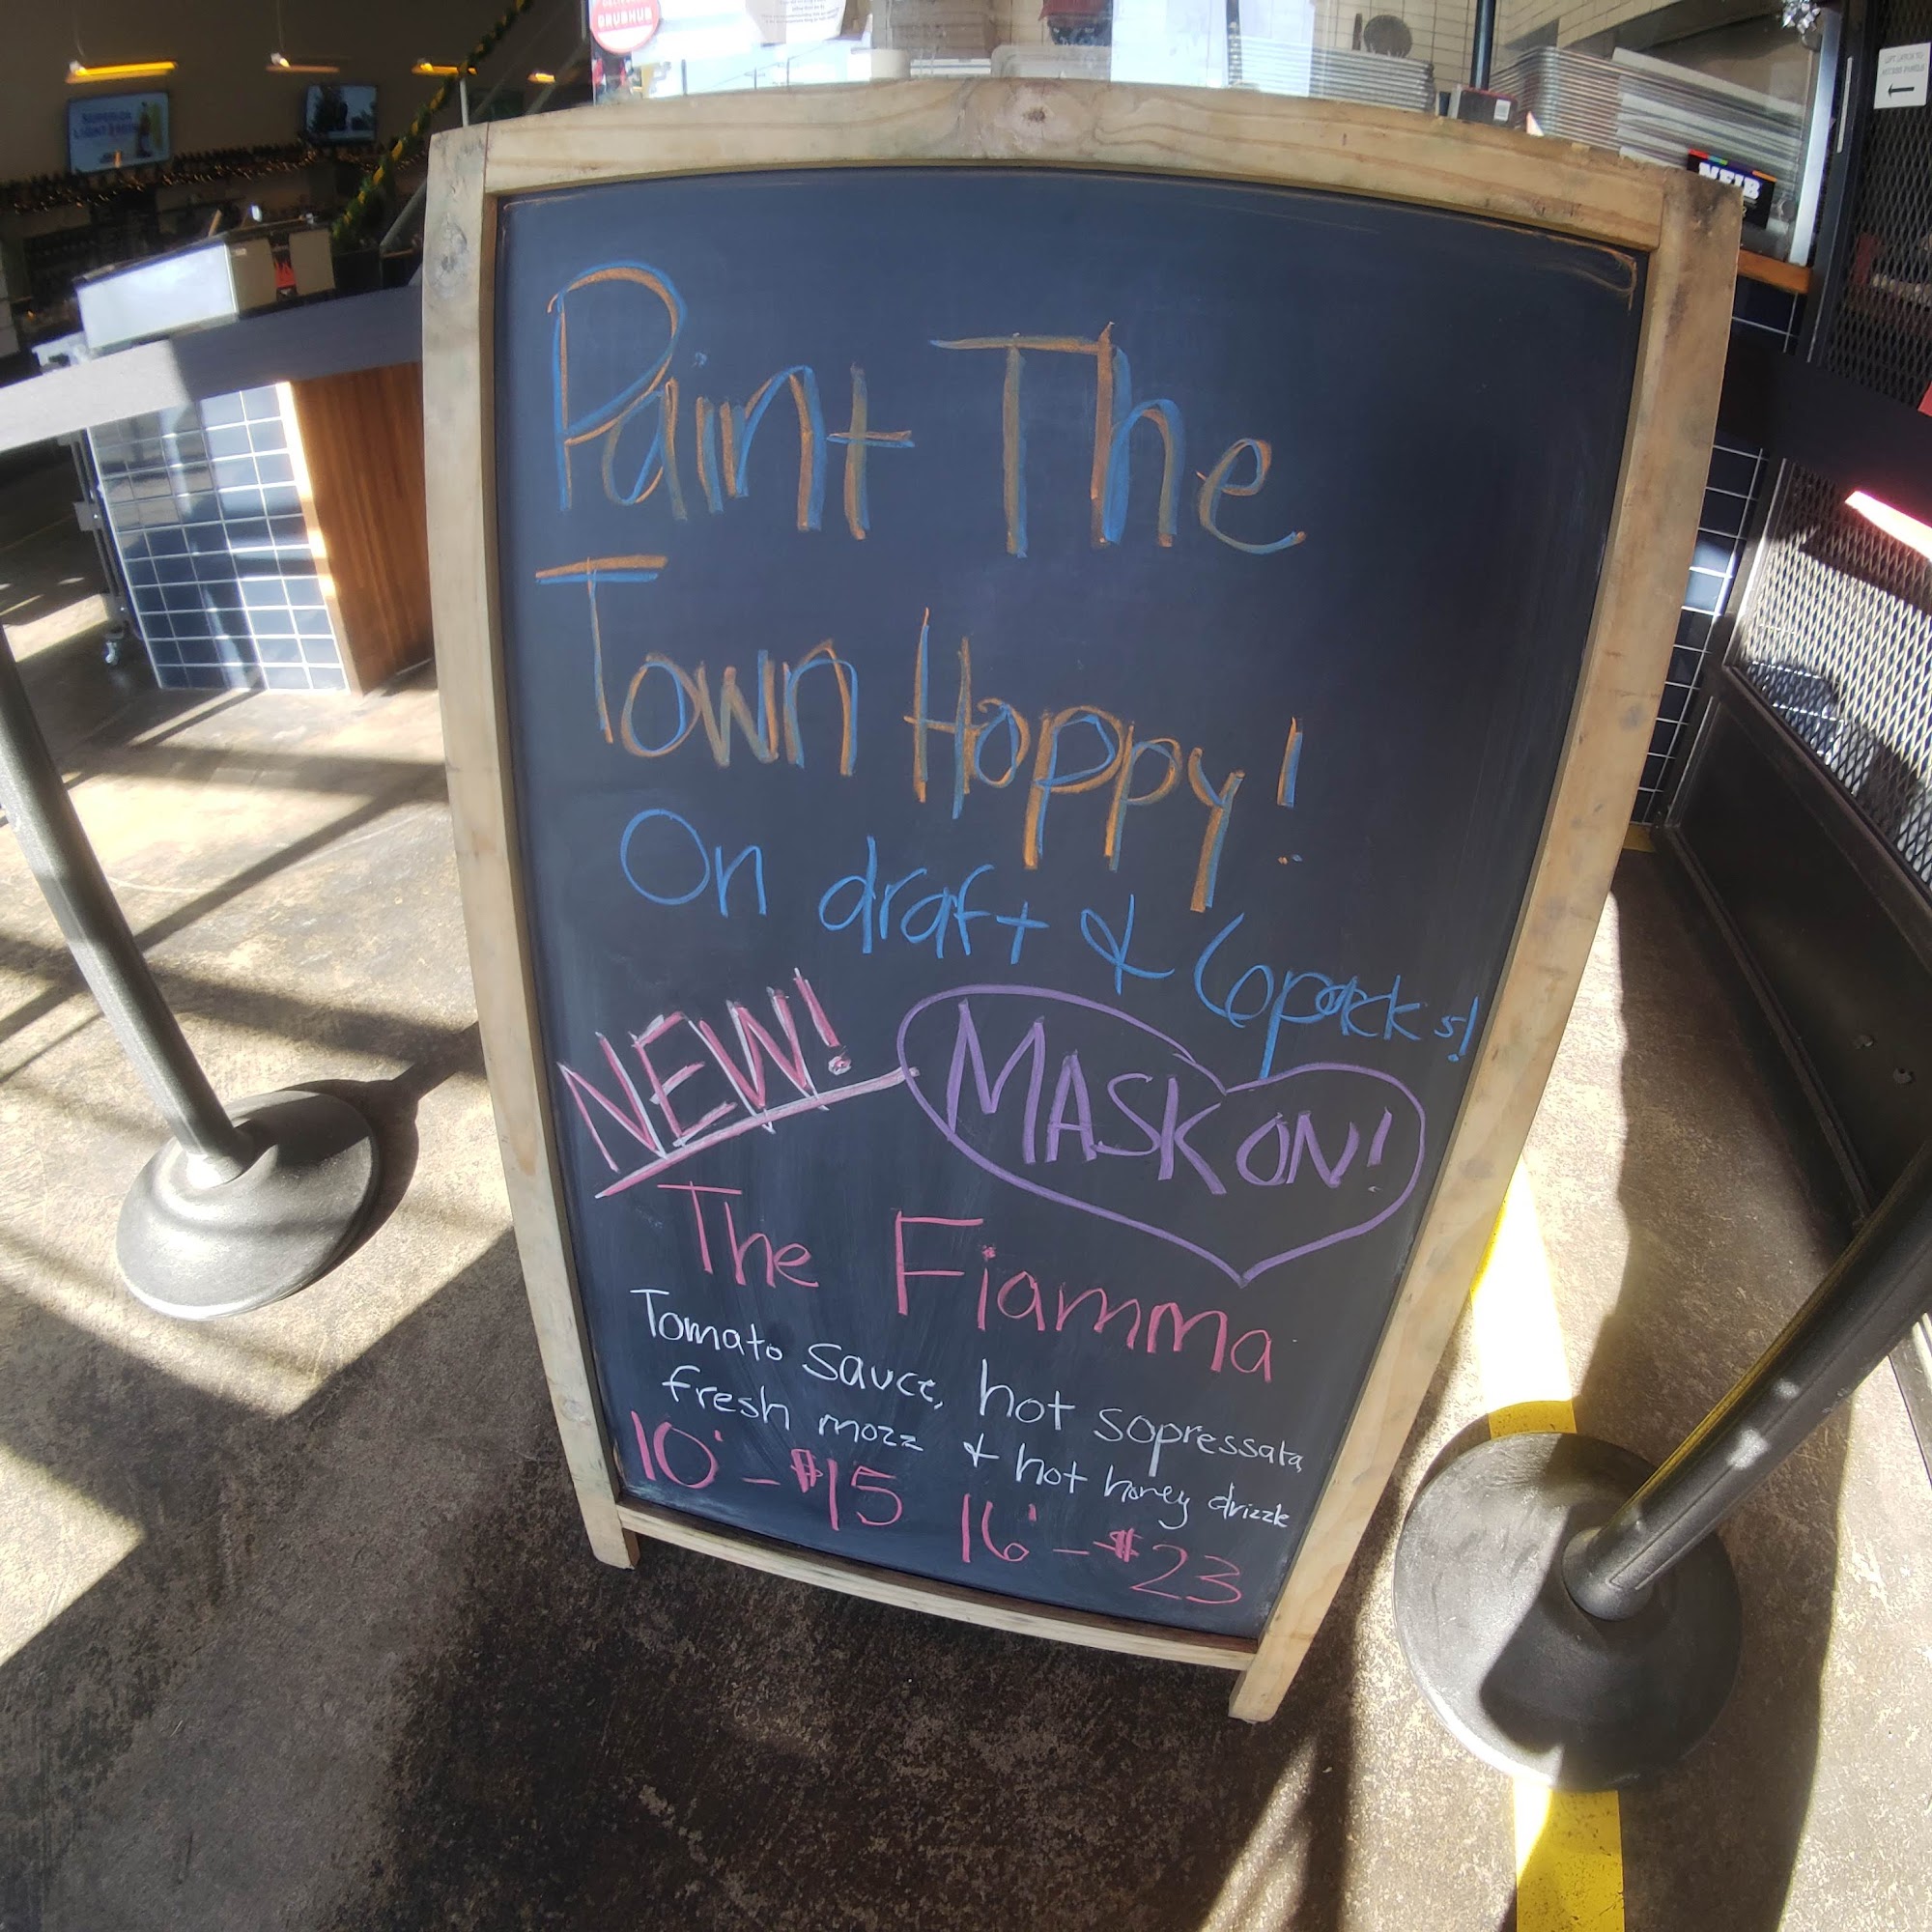 GRUBHUB
SUPERIOR
LIGHT
NFIB
Paint The
Town Hoppy!
On draft & 6packs!
NEW!
MASK ON!
The Fiamma
Tomato sauce, hot sopressata,
fresh mozz & hot honey drizzle
10" - $15 16" - $23